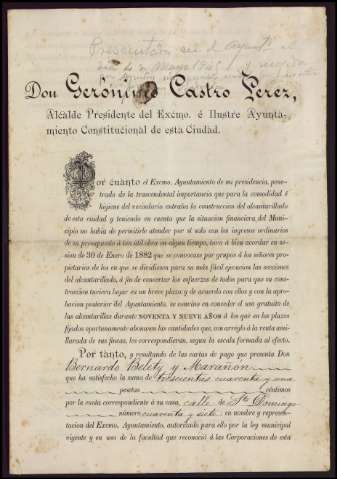 Presentada en el Ayunt.º el
Don Gerónimo Castro Perez,
Alcalde Presidente del Excmo. é Ilustre Ayunta-
miento Constitucional de esta Ciudad.
Por cuanto el Excmo. Ayuntamiento de mi presidencia, pene-
trado de la trascendental importancia que para la comodidad é
higiene del vecindario entraña la construccion del alcantarillado
de esta ciudad y teniendo en cuenta que la situacion financiera del Muni-
cipio no habia de permitirle atender por si solo con los ingresos ordinarios
de su presupuesto á tan útil obra en algun tiempo, tuvo á bien acordar en se-
sion de 30 de Enero de 1882 que se convocase por grupos á los señores pro-
pietarios de los en que se dividiesen para su más fácil ejecucion las secciones
del alcantarillado, á fin de concertar los esfuerzos de todos para que su cons-
truccion tuviera lugar en un breve plazo y de acuerdo con ellos y con la apro-
bacion posterior del Ayuntamiento, se convino en conceder el uso gratuito de
las alcantarillas durante NOVENTA Y NUEVE AÑOS á los que en los plazos
fijados oportunamente abonasen las cantidades que, con arreglo á la renta ami-
llarada de sus fincas, les correspondieran, segun la escala formada al efecto.
Por tanto, y resultando de las cartas de pago que presenta Don
Bernardo Belety y Marañon
que ha satisfecho la suma de trescientas cuarenta y una
pesetas céntimos
por la cuota correspondiente á su casa, calle de Sto Domingo
número cuarenta y siete en nombre y represen-
tacion del Excmo. Ayuntamiento, autorizado para ello por la ley municipal
vigente y en uso de la facultad que reconoció á las Corporaciones de esta